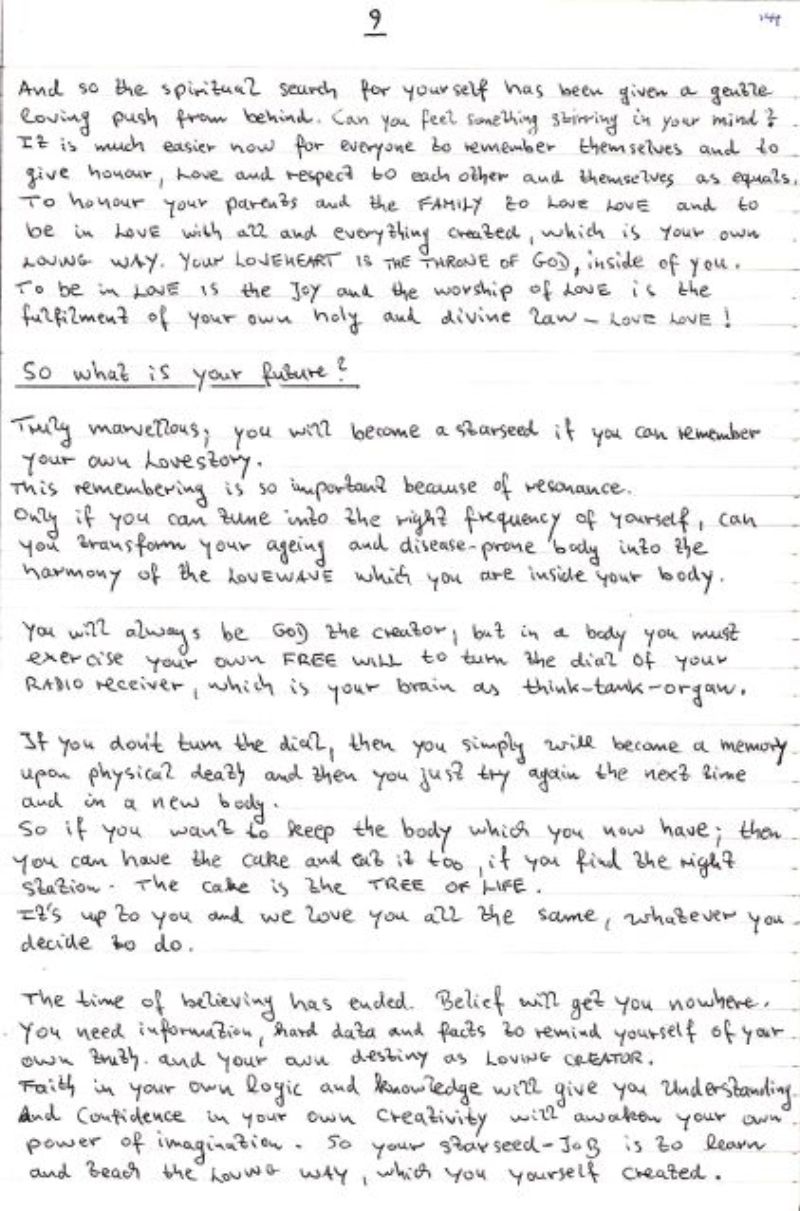 9
And so the spiritual search for yourself has been given a gentle
loving push from behind. Can you feel something stirring in your mind?
It is much easier now for everyone to remember themselves and to
give honour, love and respect to each other and themselves as equals.
To honour your parents and the FAMILY to LOVE LOVE and to
be in LOVE with all and everything created, which is your own
LOVING WAY. Your LOVEHEART IS THE THRONE OF GOD, inside of you.
To be in LOVE IS the Joy and the worship of LOVE is the
fulfilment of your own holy and divine law - LOVE LOVE!
So what is your future?
Truly marvellous; you will become a starseed if you can remember
your own Lovestory.
This remembering is so important because of resonance.
Only if you can tune into the right frequency of yourself, can
you transform your ageing and disease-prone body into the
harmony of the LOVEWAVE which you are inside your body.
You will always be GOD the creator, but in a body you must
exercise your own FREE WILL to turn the dial of your
RADIO receiver, which is your brain as think-tank-organ.
If you don't turn the dial, then you simply will become a memory
upon physical death and then you just try again the next time
and in a new body.
So if you want to keep the body which you now have; then
you can have the cake and eat it too, if you find the right
station. The cake is the TREE OF LIFE.
It's up to you and we love you all the same, whatever you
decide to do.
The time of believing has ended. Belief will get you nowhere.
You need information, hard data and facts to remind yourself of your
own truth. and your own destiny as LOVING CREATOR.
Faith in your own logic and knowledge will give you Understanding.
And Confidence in your own Creativity will awaken your own
power of imagination. So your starseed-JOB is to learn
and teach the LOVING WAY, which you yourself created.